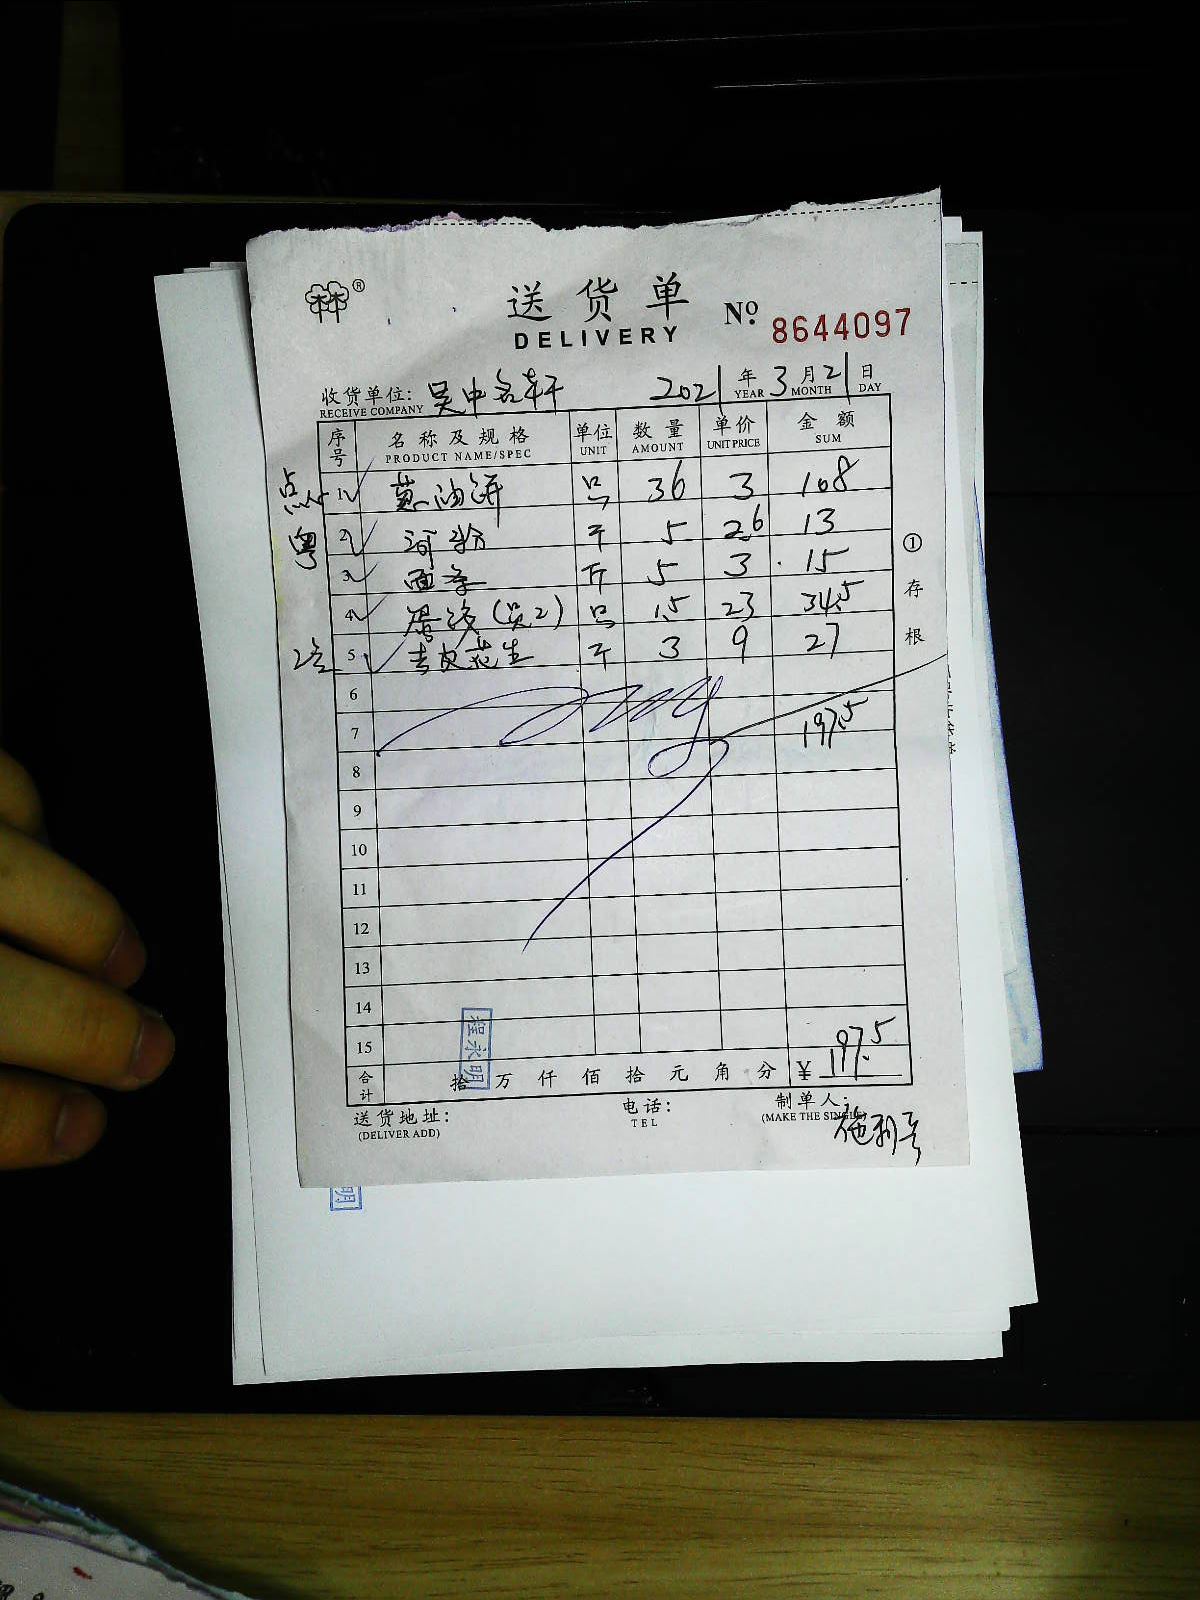 ®
送货单
DELIVERY
No. 8644097
收货单位: 吴中名轩 2021年3月21日
RECEIVE COMPANY YEAR MONTH DAY
序号 名称及规格 单位 数量 单价 金额
PRODUCT NAME/SPEC UNIT AMOUNT UNIT PRICE SUM
点心 1 葱油饼 只 36 3 108
粤 2 河粉 斤 5 2.6 13
3 面条 斤 5 3 15
4 (只2) 只 1.5 23 34.5
5 去皮花生 斤 3 9 27
6
7 197.5
8
9
10
11
12
13
14
15
合计 拾万仟佰拾元角分 ¥ 197.5
程永明
①存根
送货地址: 电话: 制单人:
(DELIVER ADD) TEL (MAKE THE SINGLE)
明